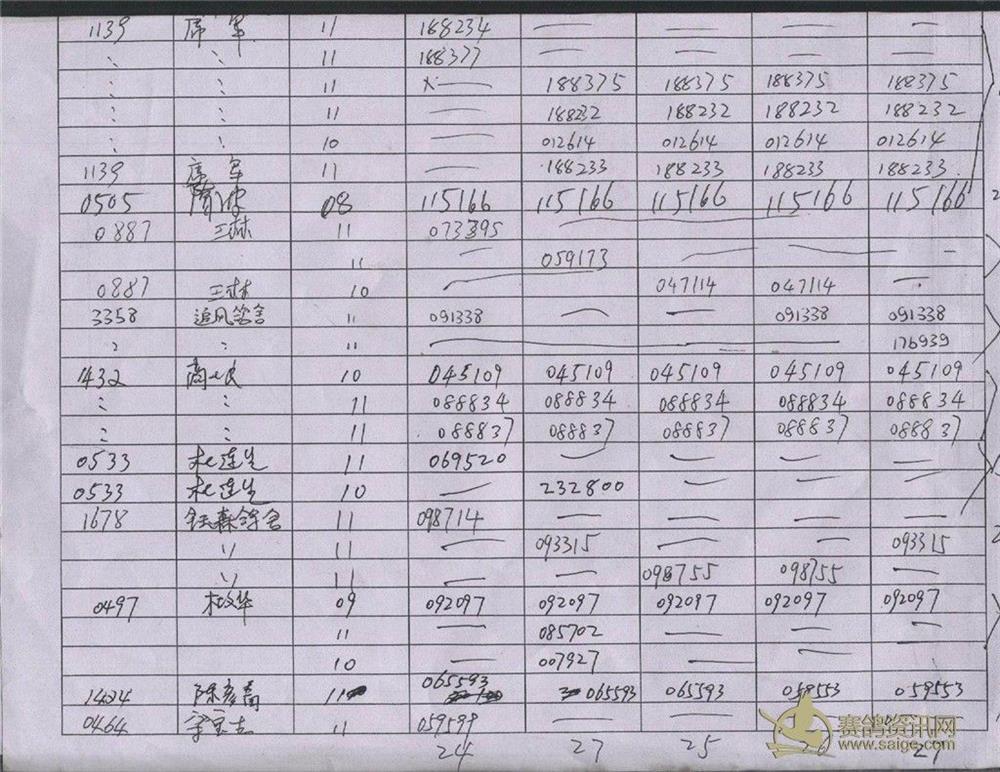 1139 席军 11 188234 — — — —
〃 〃 11 188377 — — — —
〃 〃 11 x— 188375 188375 188375 188375
〃 〃 11 — 188232 188232 188232 188232
〃 〃 10 — 012614 012614 012614 012614
1139 席军 11 — 188233 188233 188233 188233
0505 08 115166 115166 115166 115166 115166
0887 王林 11 073395
11 — 059173 — — —
0887 王林 10 — 047114 047114 —
3358 追风鸽舍 11 091338 — — 091338 091338
〃 〃 11 — 176939
1432 10 045109 045109 045109 045109 045109
〃 〃 11 088834 088834 088834 088834 088834
〃 〃 11 088837 088837 088837 088837 088837
0533 杜连生 11 069520 — — — —
0533 杜连生 10 — 232800 — — —
1678 钰森鸽舍 11 098714 — — — —
〃 11 — 093315 — — 093315
〃 11 — — 098755 098755 —
0497 09 092097 092097 092097 092097 092097
11 — 085702 — — —
10 — 007927 — — —
1424 陈彦 11 065593 065593 065593 059553 059553
0464 11 059599 — — —
24 27 25 26 27
赛鸽资讯网
www.saige.com